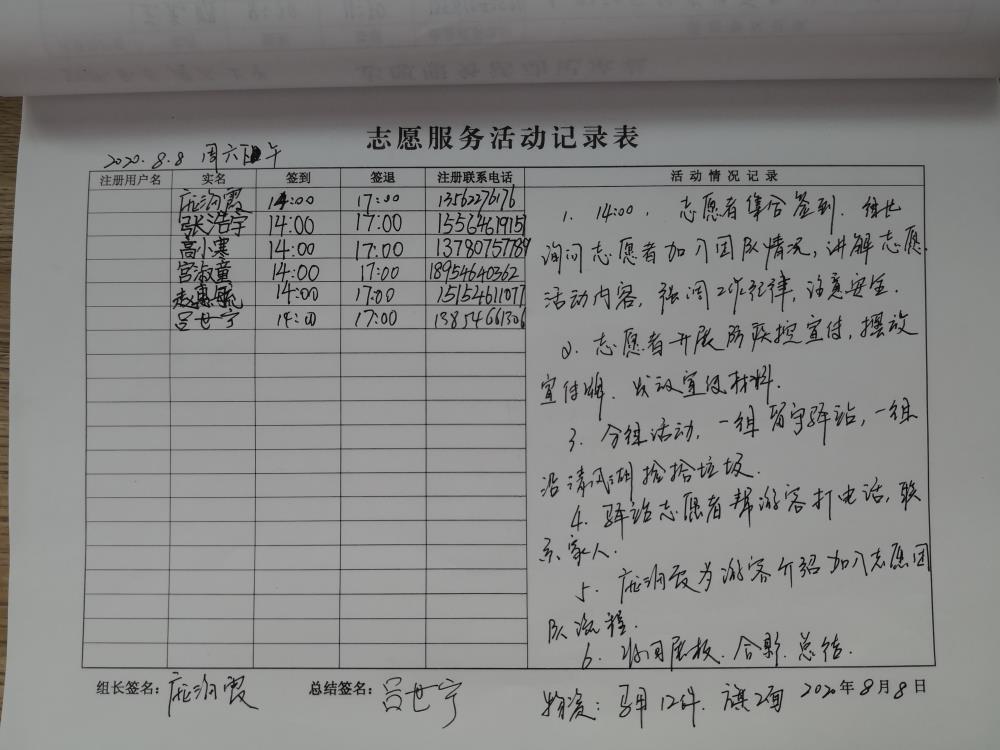 志愿服务活动记录表
2020.8.8 周六下午
注册用户名 实名 签到 签退 注册联系电话 活动情况记录
庞洵霞 14:00 17:00 13562276176
张浩宇 14:00 17:00 15564619151
高小寒 14:00 17:00 13780757789
宫淑童 14:00 17:00 18954640362
14:00 17:00 15154611077
吕世宁 14:00 17:00 13854661306
1. 14:00，志愿者集合签到．组长
询问志愿者加入团队情况，讲解志愿
活动内容，强调工作纪律，注意安全．
2. 志愿者开展防疫控宣传，摆放
宣传牌．发放宣传材料．
3. 分组活动，一组留守驿站，一组
沿清风湖捡拾垃圾．
4. 驿站志愿者帮游客打电话，联
系家人．
5. 庞洵霞为游客介绍加入志愿团
队流程．
6. 收回展板．合影．总结．
组长签名：庞洵霞 总结签名：吕世宁 物资：马甲12件．旗2面 2020年8月8日